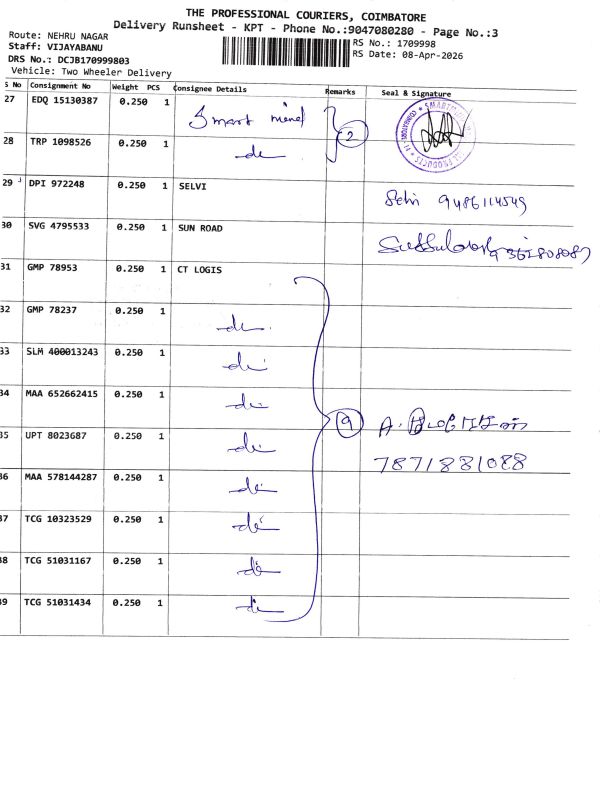 THE PROFESSIONAL COURIERS, COIMBATORE
Delivery Runsheet - KPT - Phone No.:9047080280 - Page No.:3
Route: NEHRU NAGAR
RS No.: 1709998
Staff: VIJAYABANU
RS Date: 08-Apr-2026
DRS No.: DCJB170999803
Vehicle: Two Wheeler Delivery
S No Consignment No Weight PCS Consignee Details Remarks Seal & Signature
27 EDQ 15130387 0.250 1 Smart 2
28 TRP 1098526 0.250 1 do
29 DPI 972248 0.250 1 SELVI Selvi 9486114549
30 SVG 4795533 0.250 1 SUN ROAD
31 GMP 78953 0.250 1 CT LOGIS
32 GMP 78237 0.250 1 do
33 SLM 400013243 0.250 1 do
34 MAA 652662415 0.250 1 do 9 A.
35 UPT 8023687 0.250 1 do 7871881088
36 MAA 578144287 0.250 1 do
37 TCG 10323529 0.250 1 do
38 TCG 51031167 0.250 1 do
39 TCG 51031434 0.250 1 do